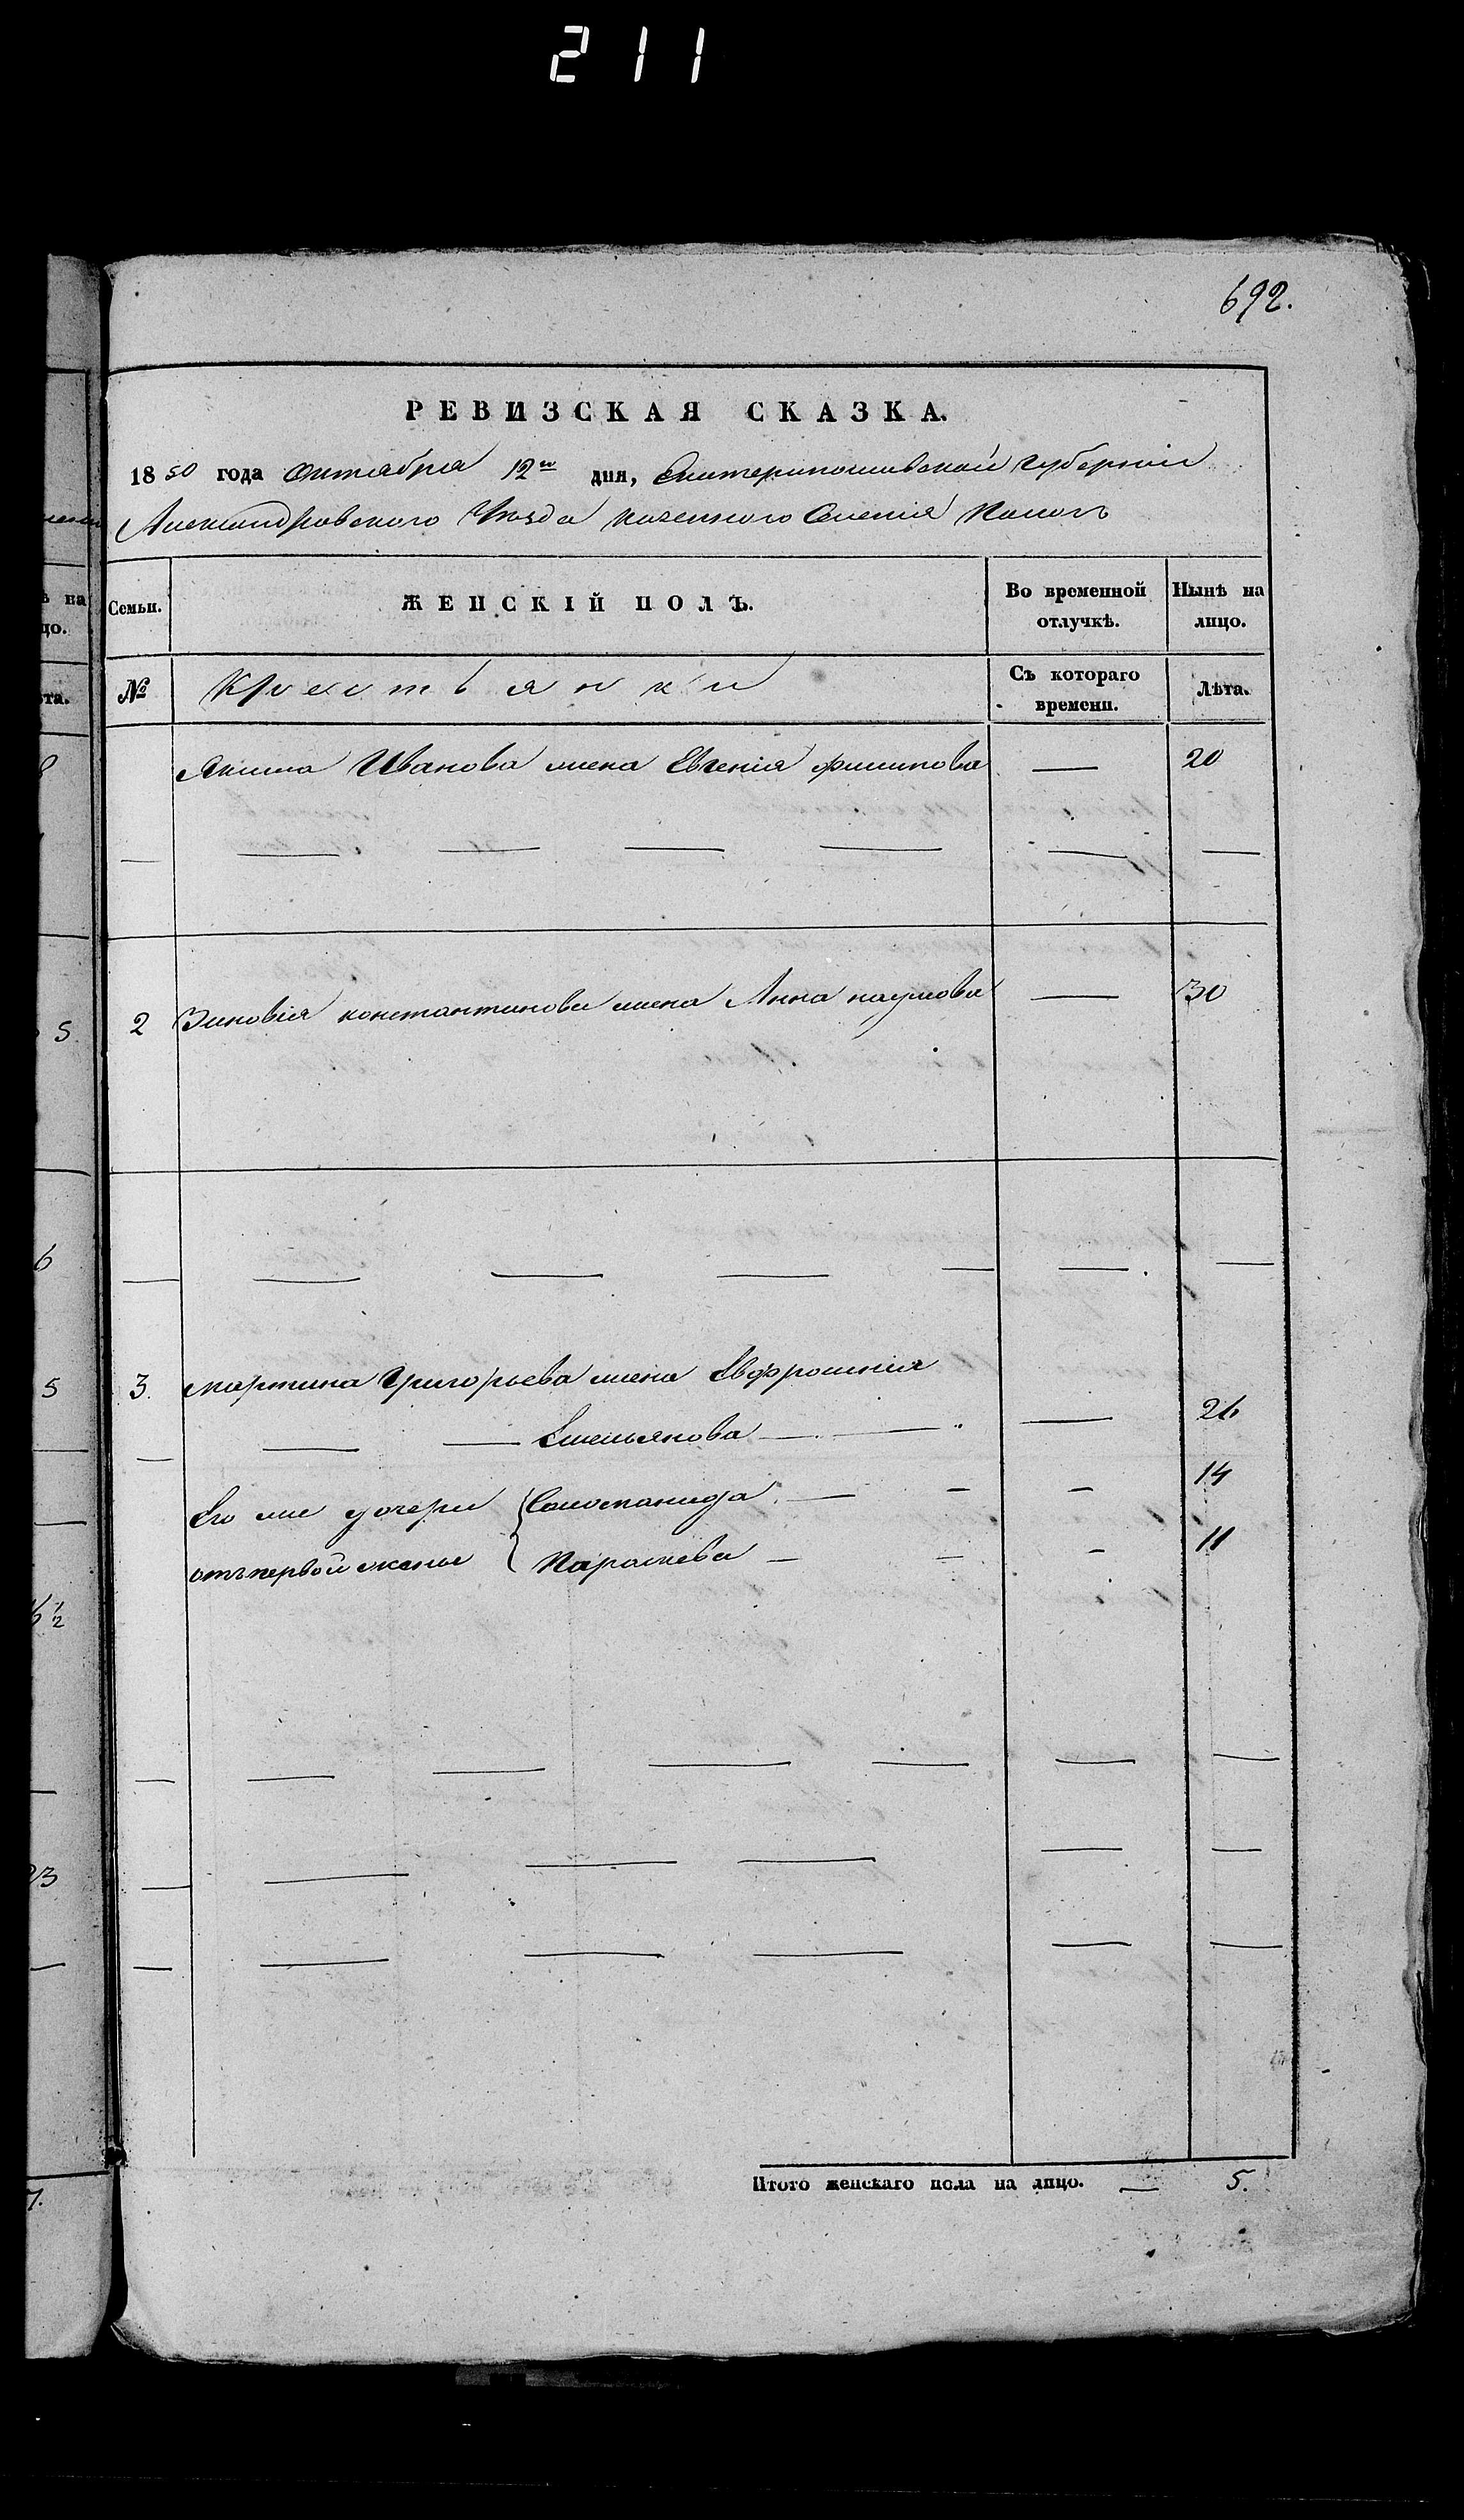 211
692.
РЕВИЗСКАЯ СКАЗКА.
1850 года Октября 12го дня, Екатеринославской Губернии
Александровского Уезда казенного Селения
Семьи.
ЖЕНСКІЙ ПОЛЪ.
Во временной отлучкѣ.
Нынѣ на лицо.
№
Крестьянки
Съ котораго времени.
Лѣта.
Якима Иванова жена Евгенія Филипова — 20
2 Зиновія Константинова жена Анна Наумова — 30
3. Мартина Григорьева жена Евфросинія
Емельянова — 26
Его же дочери Соломанида — 14
отъ первой жены Параскева — 11
Итого женскаго пола на лицо. — 5.